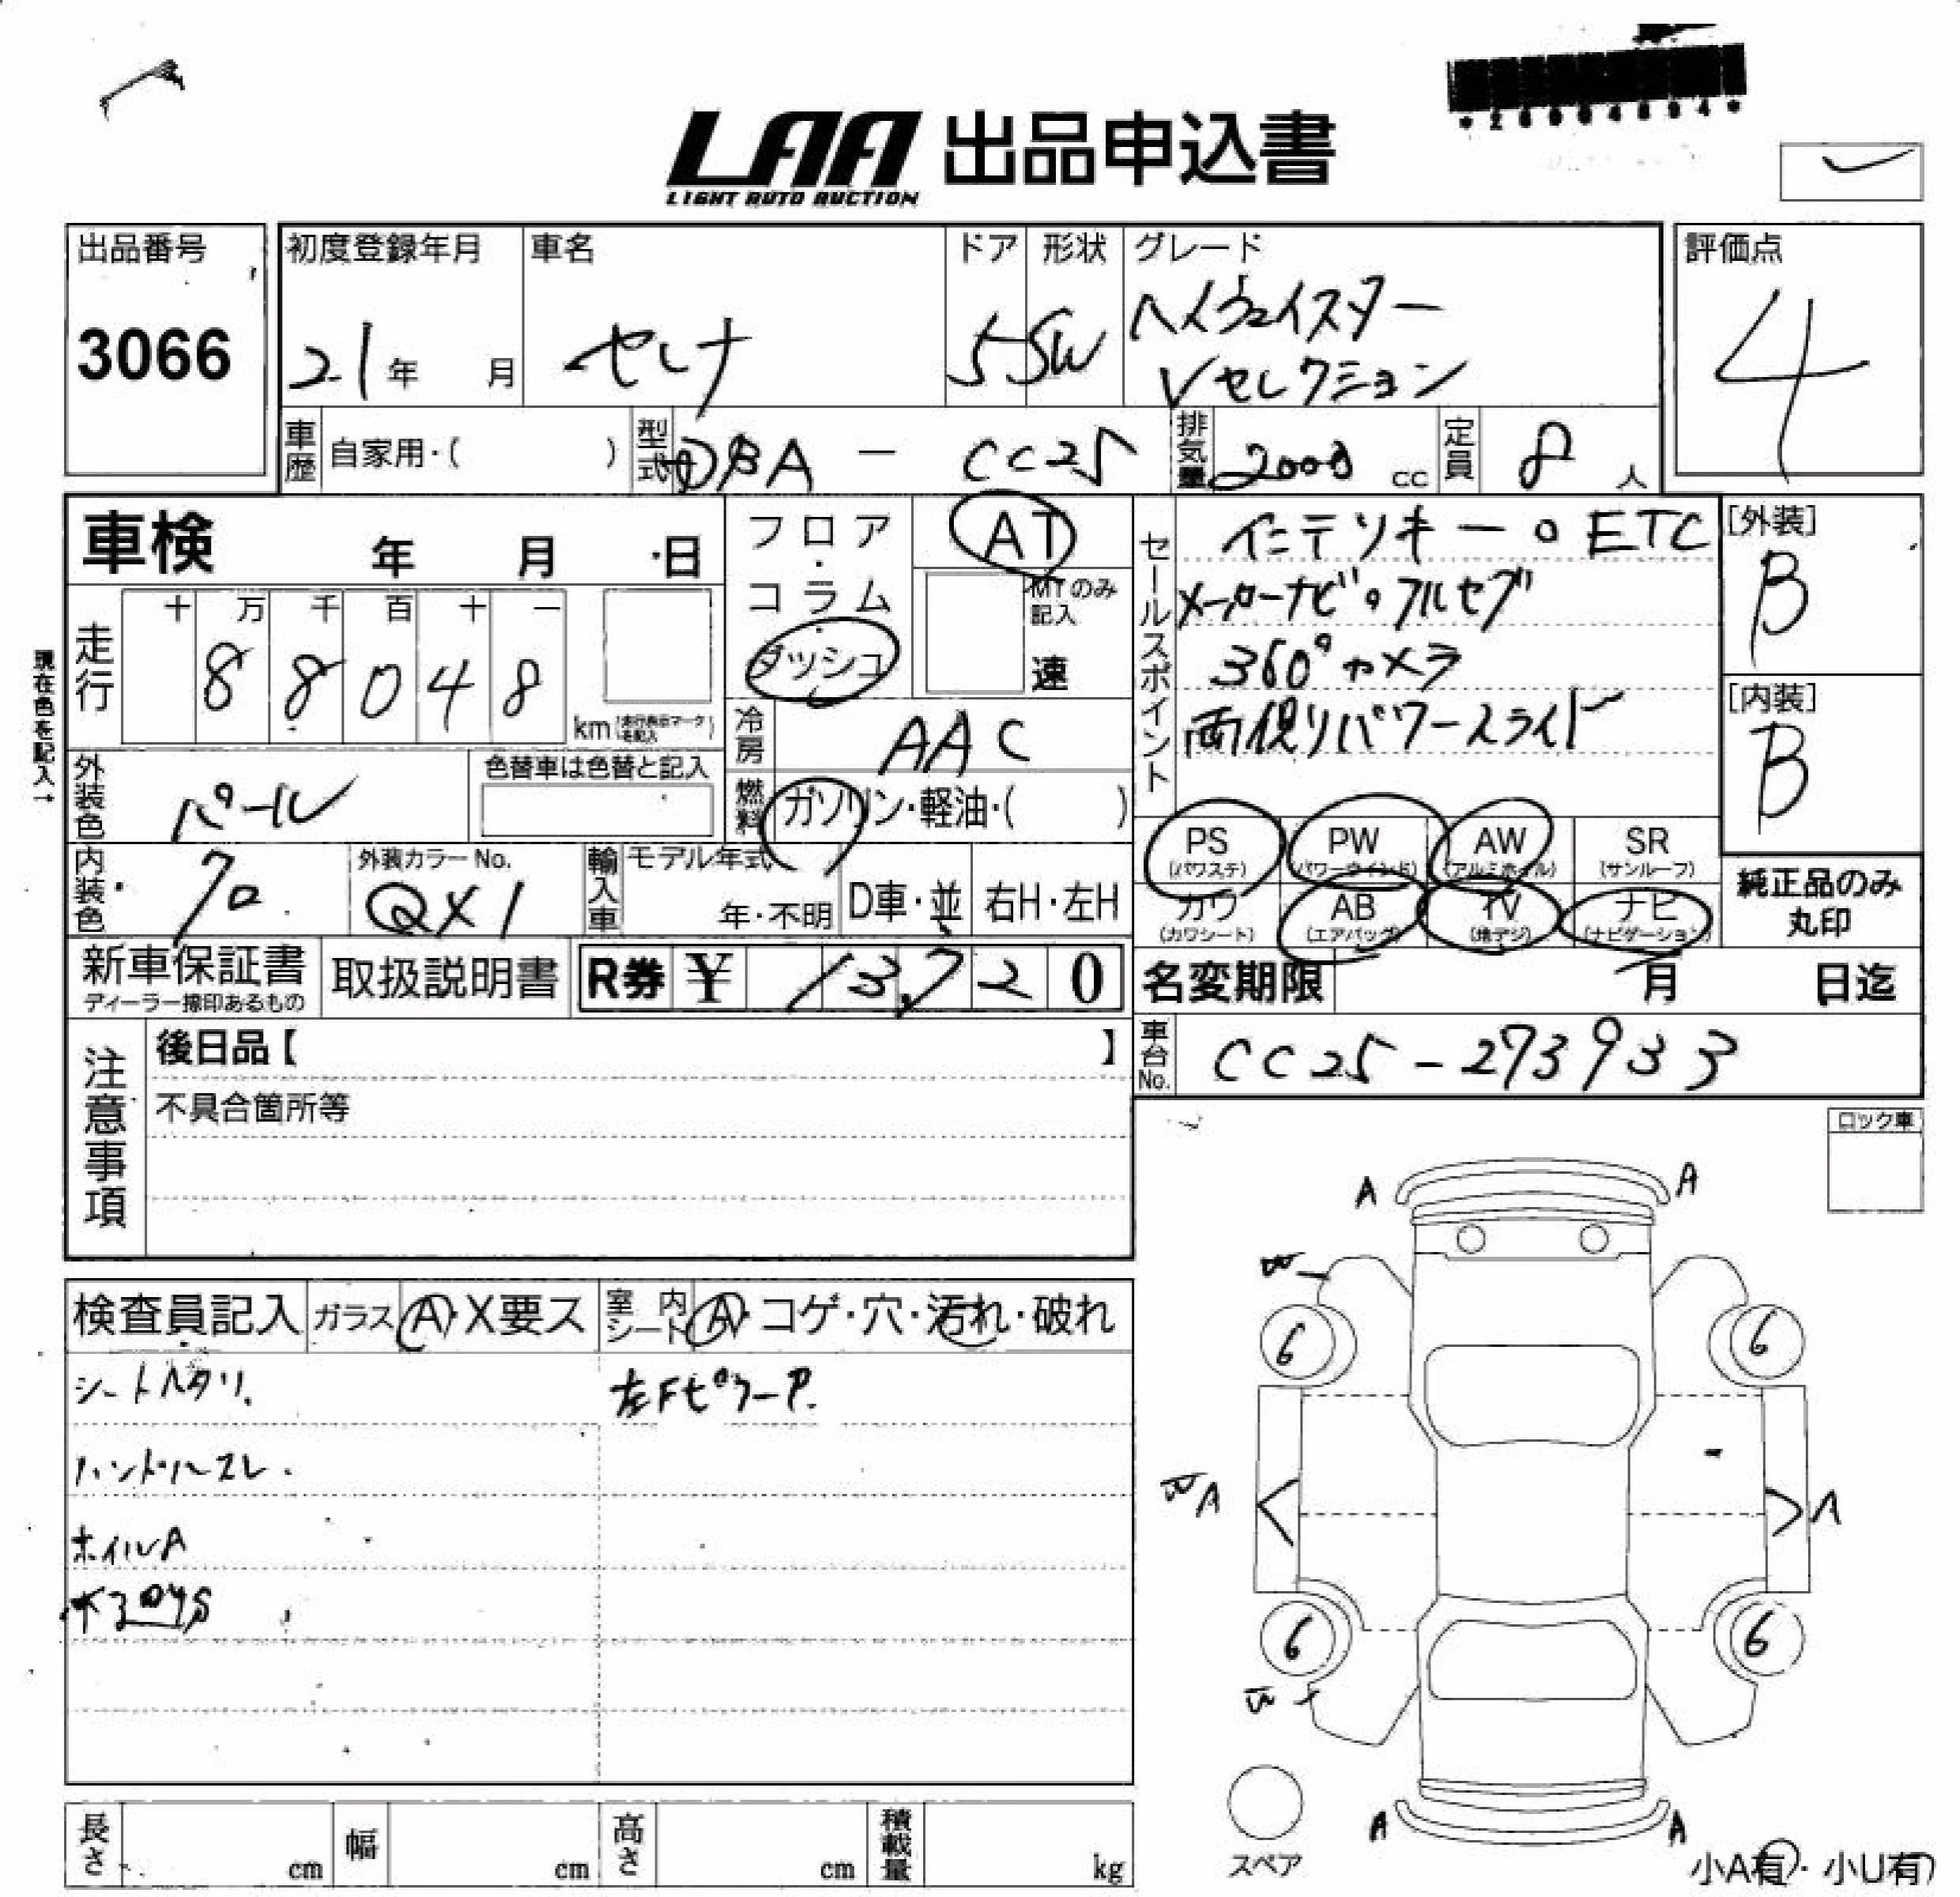 LAA 出品申込書
LIGHT AUTO AUCTION
出品番号
3066
初度登録年月
21年 月
車名
セレナ
ドア
5
形状
SW
グレード
ハイウェイスター
Vセレクション
評価点
4
車歴 自家用・( )
型式 DBA - CC25
排気量 2000 cc
定員 8 人
車検 年 月 日
走行
十 万 千 百 十 一
8 8 0 4 8
km (走行表示マークを記入)
現在色を記入→
フロア・コラム・ダッシュ
AT
MTのみ記入
速
冷房 AAC
燃料 ガソリン・軽油・( )
外装色 パール
色替車は色替と記入
内装色 クロ
外装カラーNo.
QX1
輸入車 モデル年式
年・不明
D車・並
右H・左H
セールスポイント
インテリキー。ETC
メーカーナビ。フルセグ
360°カメラ
両側パワースライド
[外装]
B
[内装]
B
PS (パワステ)
PW (パワーウインド)
AW (アルミホイル)
SR (サンルーフ)
カワ (カワシート)
AB (エアバッグ)
TV (地デジ)
ナビ (ナビゲーション)
純正品のみ
丸印
新車保証書
ディーラー捺印あるもの
取扱説明書
R券 ¥ 13,720
名変期限 月 日迄
車台No. CC25-273933
注意事項
後日品【 】
不具合箇所等
ロック車
検査員記入 ガラス A・X要ス
室内シート A・コゲ・穴・汚れ・破れ
シートヘタリ.
左FピラーP.
ハンドルスレ.
ホイルA
A A
W
6 6
W A
A
6 6
W
A A
スペア
小A有・小U有
長さ cm
幅 cm
高さ cm
積載量 kg